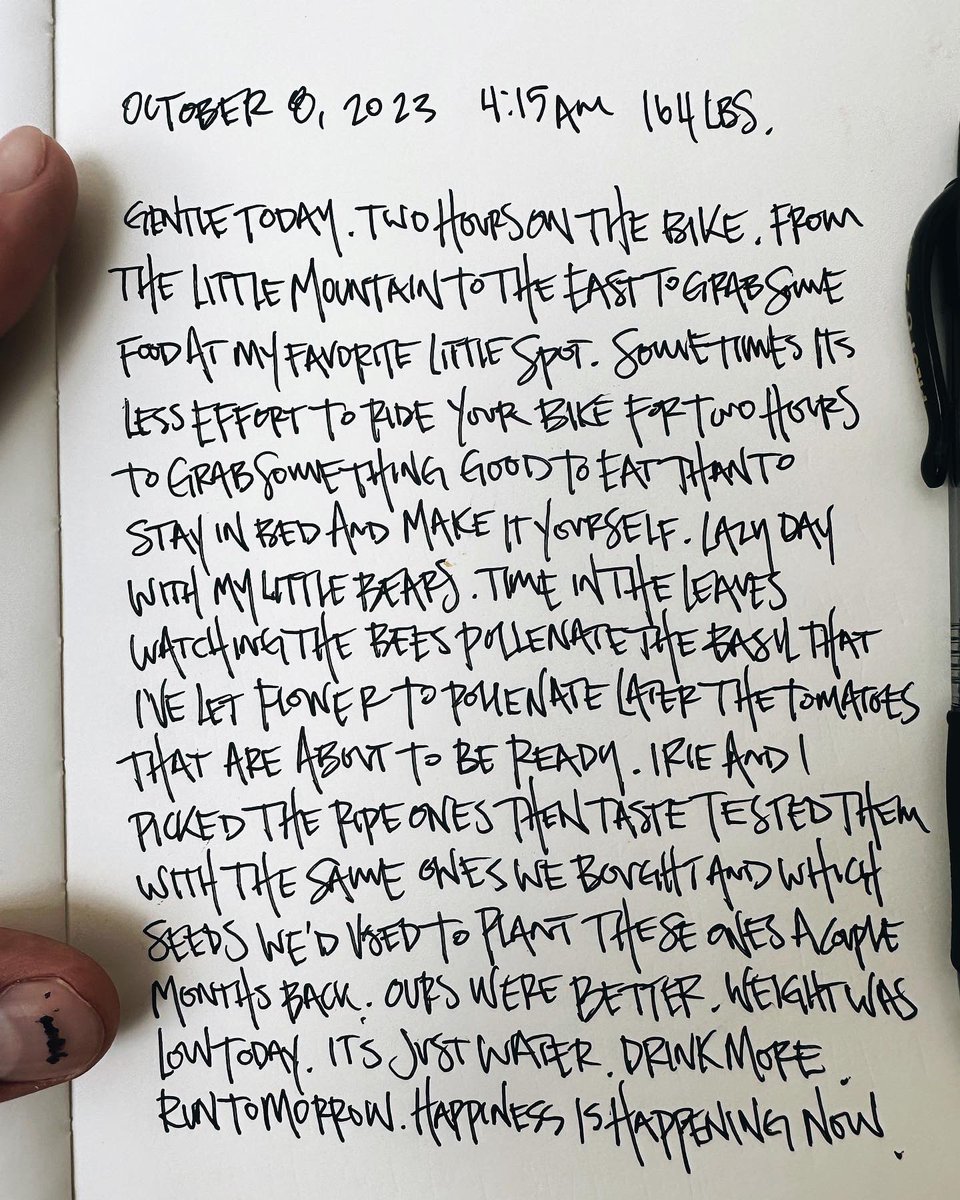 OCTOBER 8, 2023 4:15AM 164LBS.
GENTLE TODAY. TWO HOURS ON THE BIKE. FROM
THE LITTLE MOUNTAIN TO THE EAST TO GRAB SOME
FOOD AT MY FAVORITE LITTLE SPOT. SOMETIMES ITS
LESS EFFORT TO RIDE YOUR BIKE FOR TWO HOURS
TO GRAB SOMETHING GOOD TO EAT THAN TO
STAY IN BED AND MAKE IT YOURSELF. LAZY DAY
WITH MY LITTLE BEARS. TIME IN THE LEAVES
WATCHING THE BEES POLLENATE THE BASIL THAT
I'VE LET FLOWER TO POLLENATE LATER THE TOMATOES
THAT ARE ABOUT TO BE READY. IRIE AND I
PICKED THE RIPE ONES THEN TASTE TESTED THEM
WITH THE SAME ONES WE BOUGHT AND WHICH
SEEDS WE'D USED TO PLANT THESE ONES A COUPLE
MONTHS BACK. OURS WERE BETTER. WEIGHT WAS
LOW TODAY. IT'S JUST WATER. DRINK MORE.
RUN TOMORROW. HAPPINESS IS HAPPENING NOW.